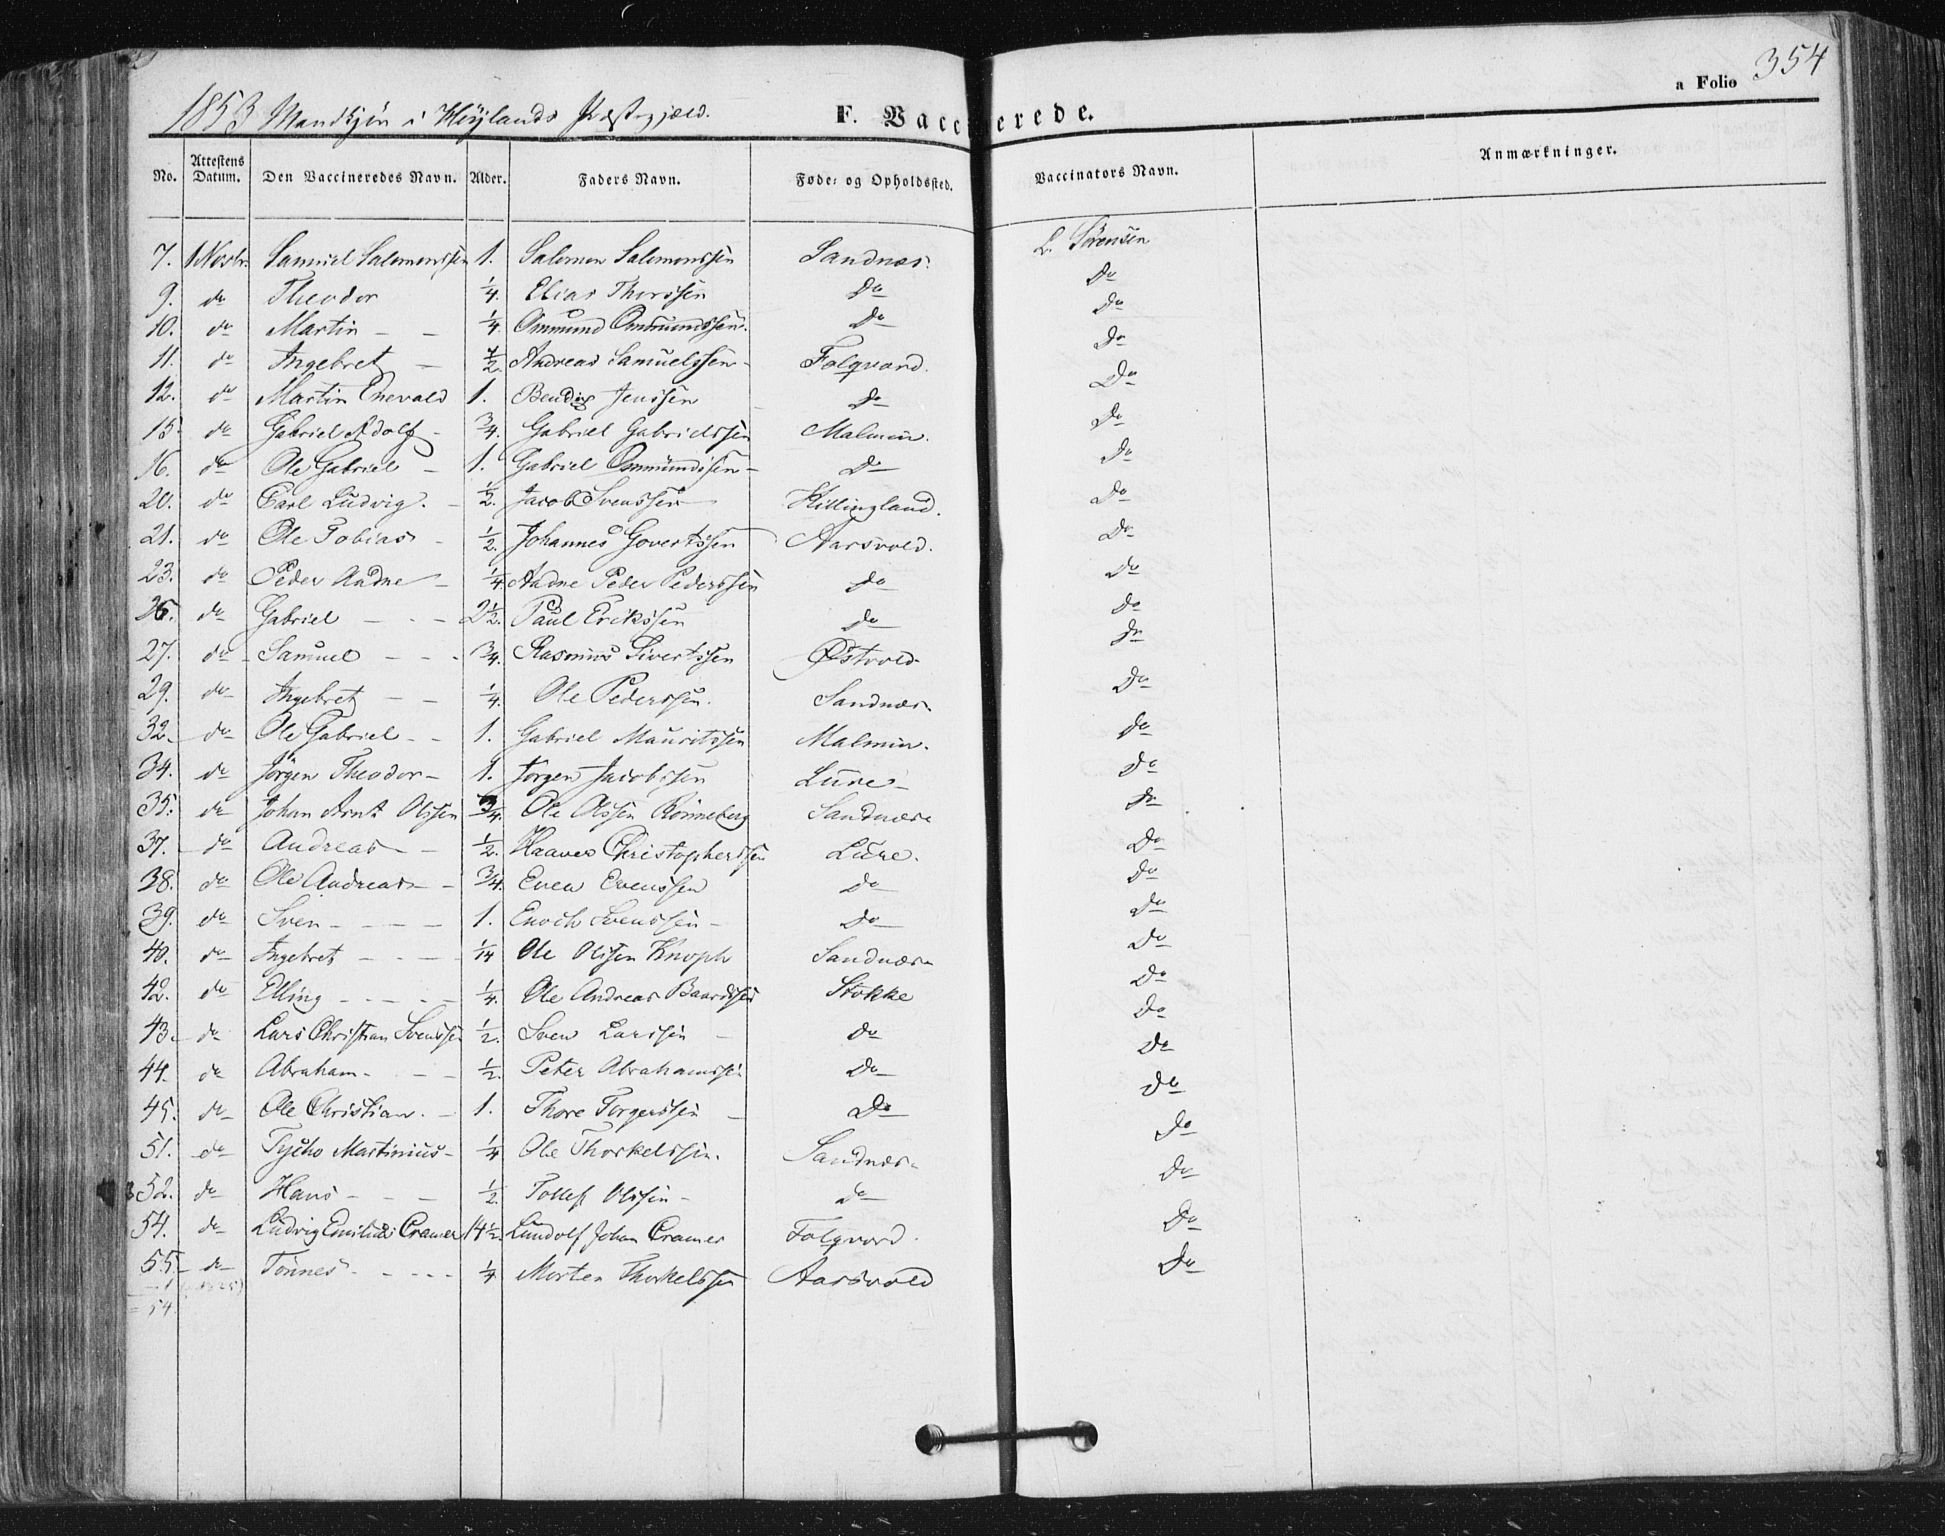 354
a Folio
1853 Mandkjön i Höylands Præstegjæld.
F. Vaccinerede.
No. Attestens Datum. Den Vaccineredes Navn. Alder. Faders Navn. Føde- og Opholdssted. Vaccinators Navn. Anmærkninger.
7. 1 Novbr. Samuel Salomonssen 1. Salomon Salomonssen Sandnæs. L. Sörensen
9. do Theodor 1/4. Elias Thorssen Do Do
10. do Martin - - 1/4. Ommund Ommundssen. Do Do
11. do Ingebret - 1/2. Andreas Samuelssen - Folqvord. Do
12. do Martin Enevald 1. Bendix Jenssen do Do
15. do Gabriel Adolf - 3/4. Gabriel Gabrielssen Malmin. Do
16. do Ole Gabriel - 1. Gabriel Ommundssen - Do Do
20. do Carl Ludvig. - 1/2. Jacob Svenssen Killingland. Do
21. do Ole Tobias - 1/2. Johannes Govertssen Aarsvold. Do
23. do Peder Aadne - 1/4 Aadne Peder Pederssen do Do
26. do Gabriel - - - 2 1/2. Paul Erikssen do do
27. do - Samuel - - - 3/4. Rasmus Sivertssen Østvold do
29. do Ingebret - - 1/4. Ole Pederssen. Sandnæs Do
32. do Ole Gabriel - - 1. Gabriel Mauritssen Malmin. do
34. do Jörgen Theodor - 1. Jörgen Jacobssen Lure - Do
35. do Johan Arnt Olssen 3/4. Ole Olssen Rönneberg Sandnæs do
37. - do Andreas - - 1/2. Haaver Christopherssen Lure. Do
38. do Ole Andreas - - 3/4. Even Evenssen Do do
39. do Sven - - - - 1. Enoch Svenssen - Do Do
40. do Ingebret - - - - 1/14 Ole Olssen Knoph Sandnæs Do
42. do Elling - - - - - 1/4. Ole Andreas Baardssen Stokke Do
43. - do Lars Christian Svenssen 1/2. Sven Larssen - do Do
44. do Abraham - - - 1/2. Peter Abrahamssen Do Do
45. do Ole Christian. - 1. Thore Torgerssen - Do Do
51. do Tycho Martinius - 1/4 Ole Thorkelssen. Sandnæs Do
52. do Hans - - - 1/2. Tollef Olssen - do Do
54. do Ludvig Emilius Cramer 14 1/2. Lundolf Johan Cramer Folqvord. Do
55. - do Tönnes - - - - 1/4 Morten Thorkelssen Aarsvold Do
- 1
= 54.